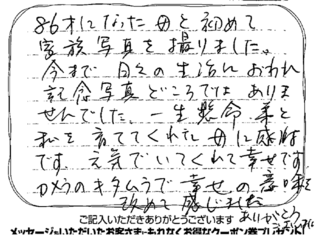 86才になった母と初めて
家族写真を撮りました。
今まで日々の生活におわれ
記念写真どころではありま
せんでした。一生懸命 弟と
私を育ててくれた母に感謝
です。元気でいてくれて幸せです
カメラのキタムラで幸せの意味を
改めて感じました
ありがとう
ご記入いただきありがとうございます
メッセージをいただいたお客さまへもれなくお得なクーポン券プレゼント!